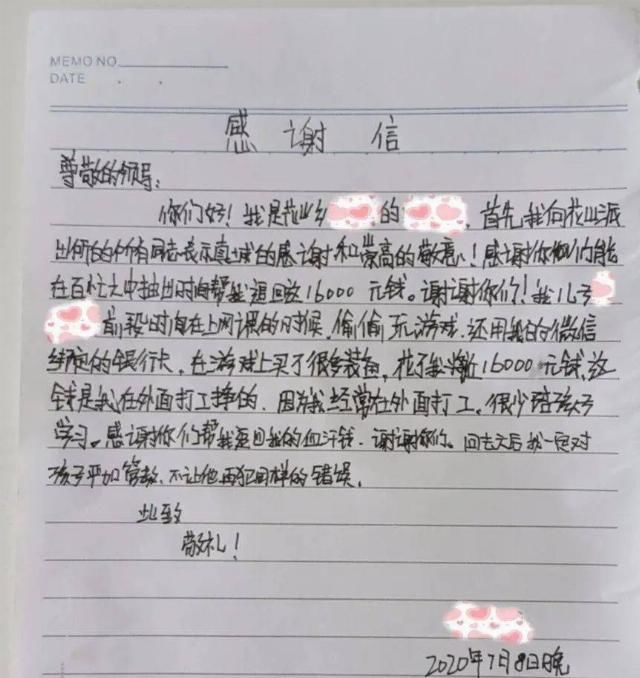 MEMO NO.
DATE . .
感谢信
尊敬的领导:
你们好!我是花山乡 的 , 首先,我向花山派
出所的所有同志表示真诚的感谢和崇高的敬意!感谢你们能
在百忙之中抽出时间帮我追回这16000元钱。谢谢你们!我儿子
前段时间在上网课的时候,偷偷玩游戏,还用我的微信
绑定的银行卡,在游戏上买了很多装备,花了我将近16000元钱,这
钱是我在外面打工挣的,因为我经常在外面打工,很少陪孩子
学习。感谢你们帮我追回我的血汗钱,谢谢你们。回去之后我一定对
孩子严加管教,不让他再犯同样的错误。
此致
敬礼!
2020年7月8日晚